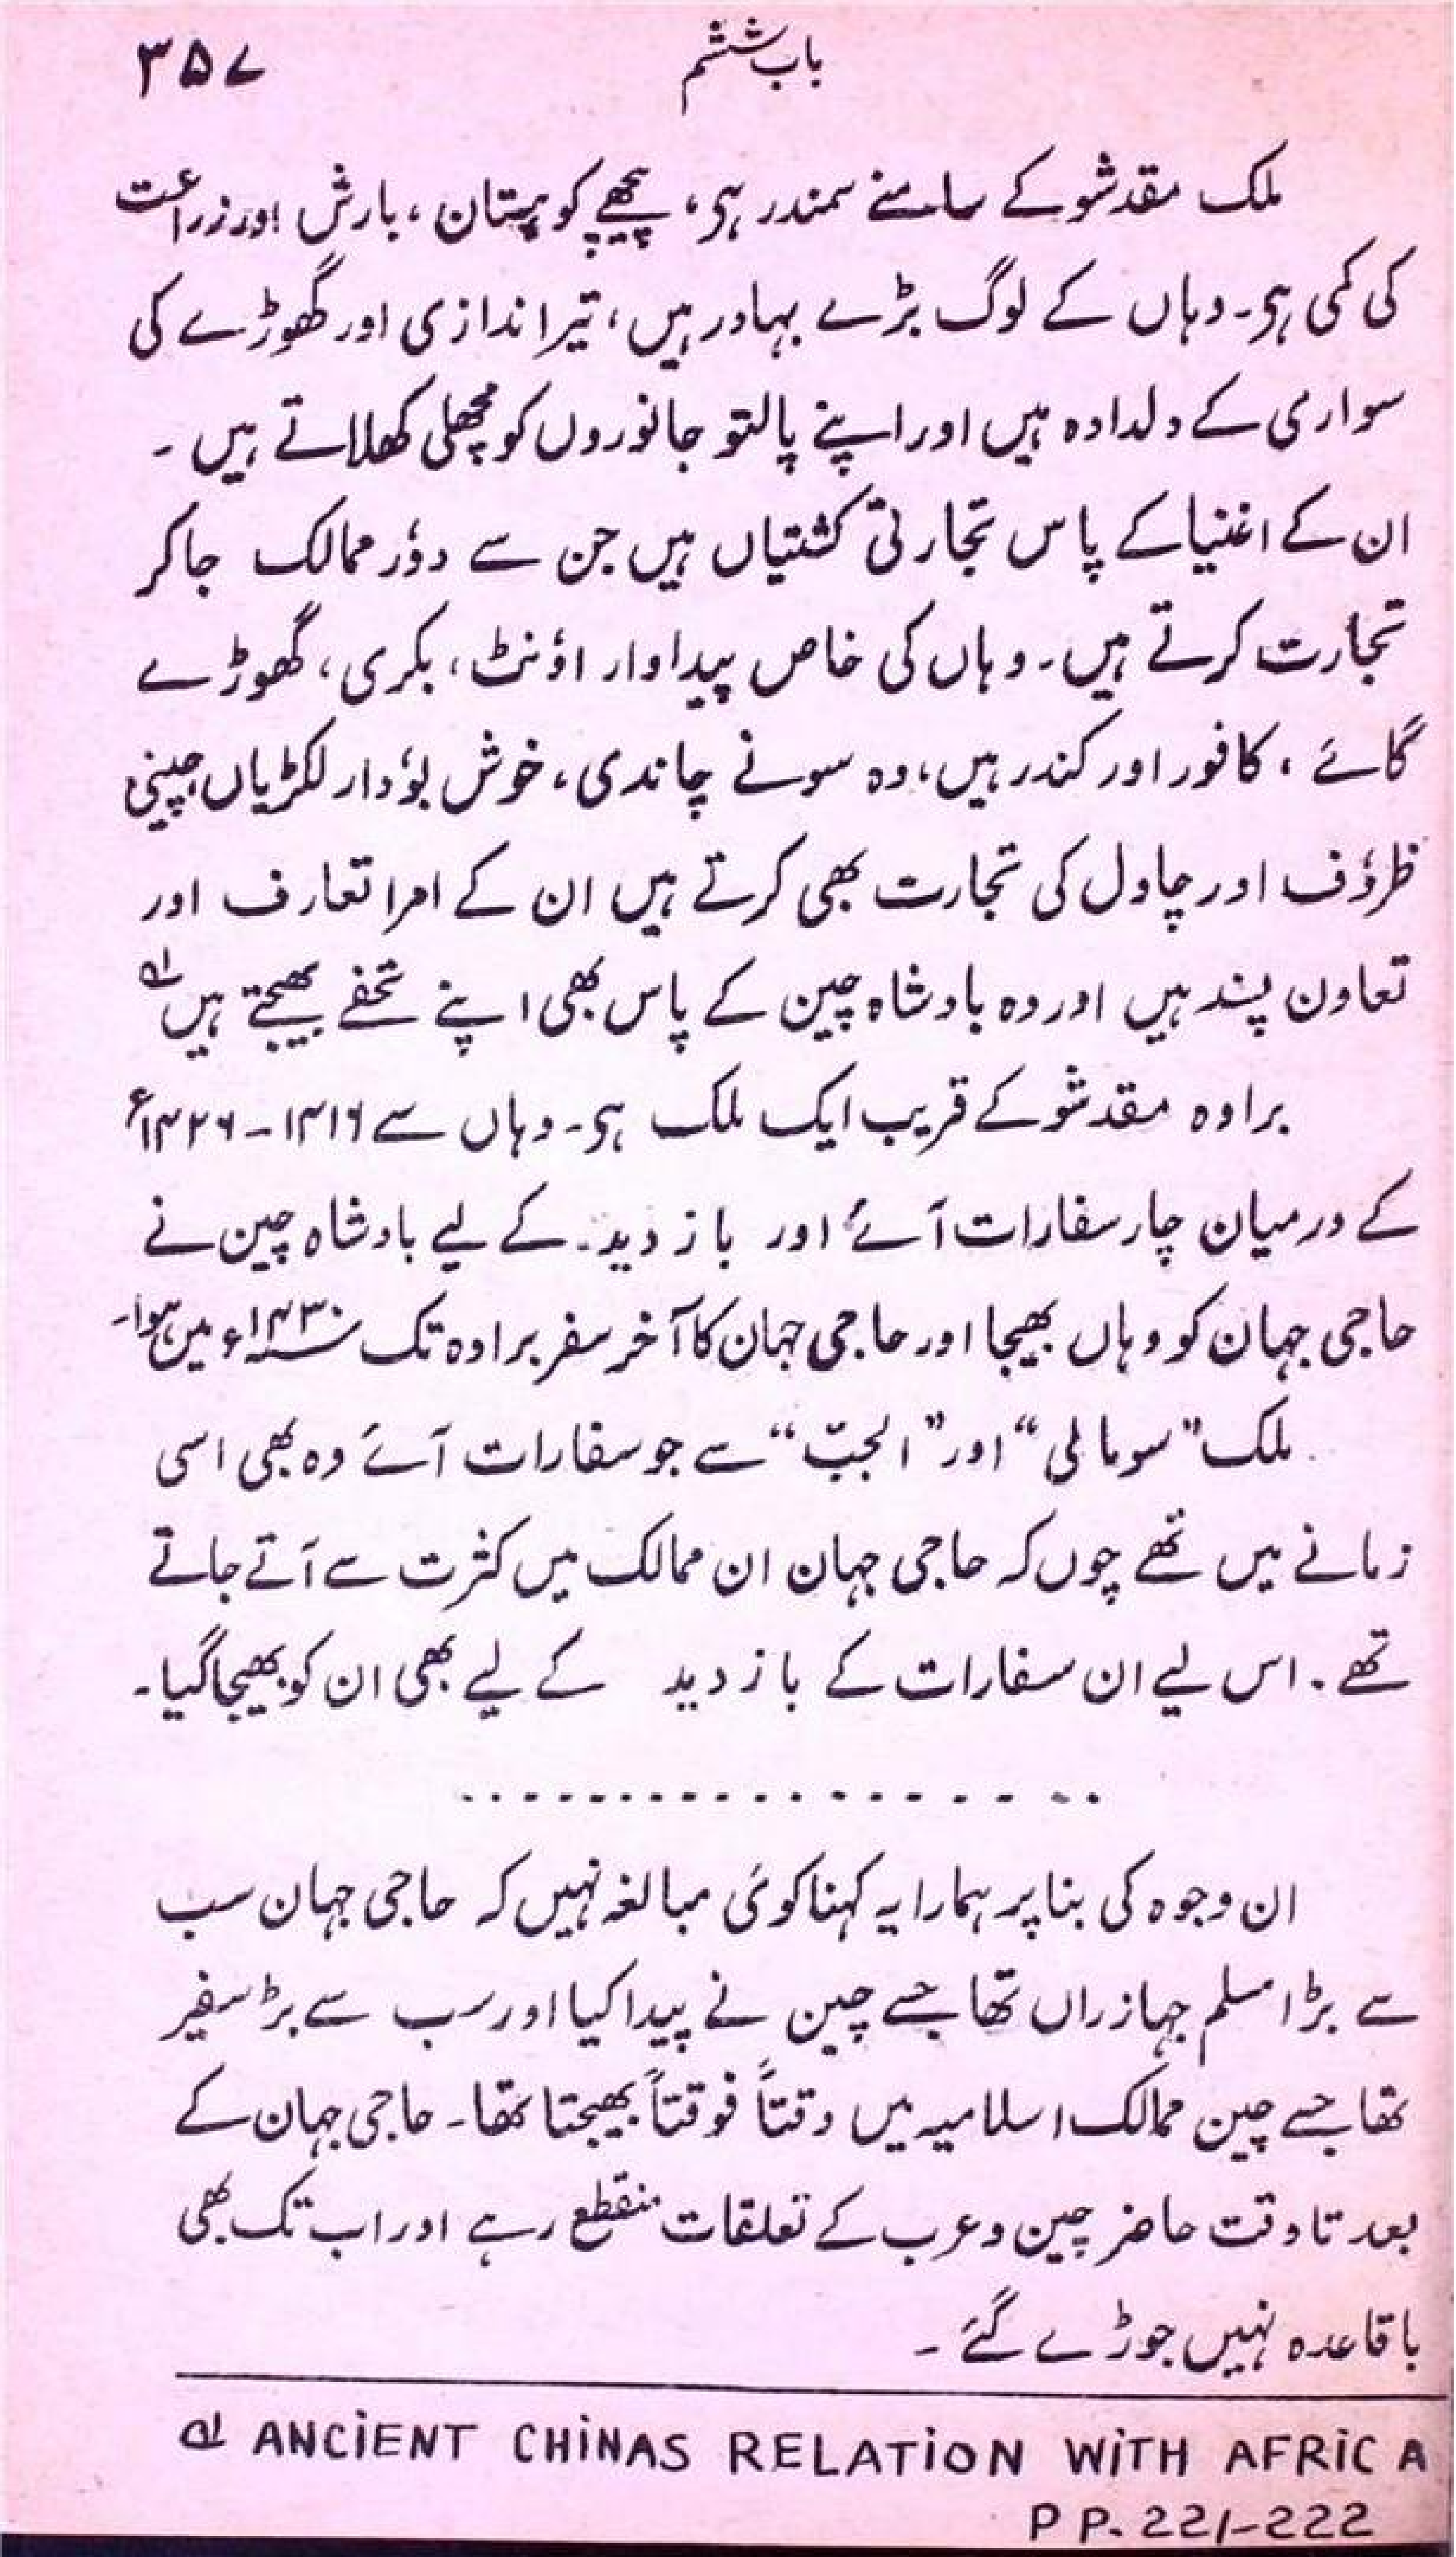 باب ششم
۳۵۷
ملک مقدشو کے سامنے سمندر ہی، پیچھے کوہستان، بارش اور زراعت
کی کمی ہی۔ وہاں کے لوگ بڑے بہادر ہیں، تیر اندازی اور گھوڑے کی
سواری کے دلدادہ ہیں اور اپنے پالتو جانوروں کو مچھلی کھلاتے ہیں۔
ان کے اغنیا کے پاس تجارتی کشتیاں ہیں جن سے دوٗر ممالک جاکر
تجارت کرتے ہیں۔ وہاں کی خاص پیداوار اوٗنٹ، بکری، گھوڑے
گائے، کافور اور کندر ہیں، وہ سونے چاندی، خوش بوٗدار لکڑیاں، چینی
ظروٗف اور چاول کی تجارت بھی کرتے ہیں ان کے امرا تعارف اور
تعاون پسند ہیں اور وہ بادشاہ چین کے پاس بھی اپنے تحفے بھیجتے ہیں لہ
براوہ مقدشو کے قریب ایک ملک ہی۔ وہاں سے ۱۴۱۶-۱۴۲۶ء
کے درمیان چار سفارات آئے اور باز دید۔ کے لیے بادشاہ چین نے
حاجی جہان کو وہاں بھیجا اور حاجی جہان کا آخر سفر براوہ تک سنہ ۱۴۳۰ء میں ہوا۔
ملک ”سومالی“ اور ”الجبّ“ سے جو سفارات آئے وہ بھی اسی
زمانے میں تھے چوں کہ حاجی جہان ان ممالک میں کثرت سے آتے جاتے
تھے۔ اس لیے ان سفارات کے باز دید کے لیے بھی ان کو بھیجا گیا۔
....................
ان وجوہ کی بنا پر ہمارا یہ کہنا کوئی مبالغہ نہیں کہ حاجی جہان سب
سے بڑا مسلم جہازراں تھا جسے چین نے پیدا کیا اور سب سے بڑ سفیر
تھا جسے چین ممالک اسلامیہ میں وقتاً فوقتاً بھیجتا تھا۔ حاجی جہان کے
بعد تا وقت حاضر چین و عرب کے تعلقات منقطع رہے اور اب تک بھی
باقاعدہ نہیں جوڑے گئے۔
لہ ANCiENT CHiNAS RELATiON WiTH AFRiCA
PP. 221-222